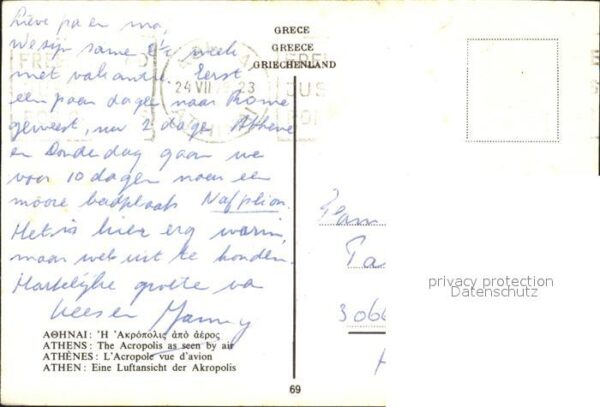 Lieve pa en ma,
We zijn samen 2½ week
met vakantie. Eerst
een paar dagen naar Rome
geweest, nu 2 dagen Athene
en Donderdag gaan we
voor 10 dagen naar een
mooie badplaats Nafplion.
Het is hier erg warm,
maar wel uit te houden.
Hartelijke groeten va
Kees en
ΑΘΗΝΑΙ: Ἡ Ἀκρόπολις ἀπὸ ἀέρος
ATHENS: The Acropolis as seen by air
ATHÈNES: L'Acropole vue d'avion
ATHEN: Eine Luftansicht der Akropolis
GRECE
GREECE
GRIECHENLAND
24 VII 23
Fam
306
69
privacy protection
Datenschutz